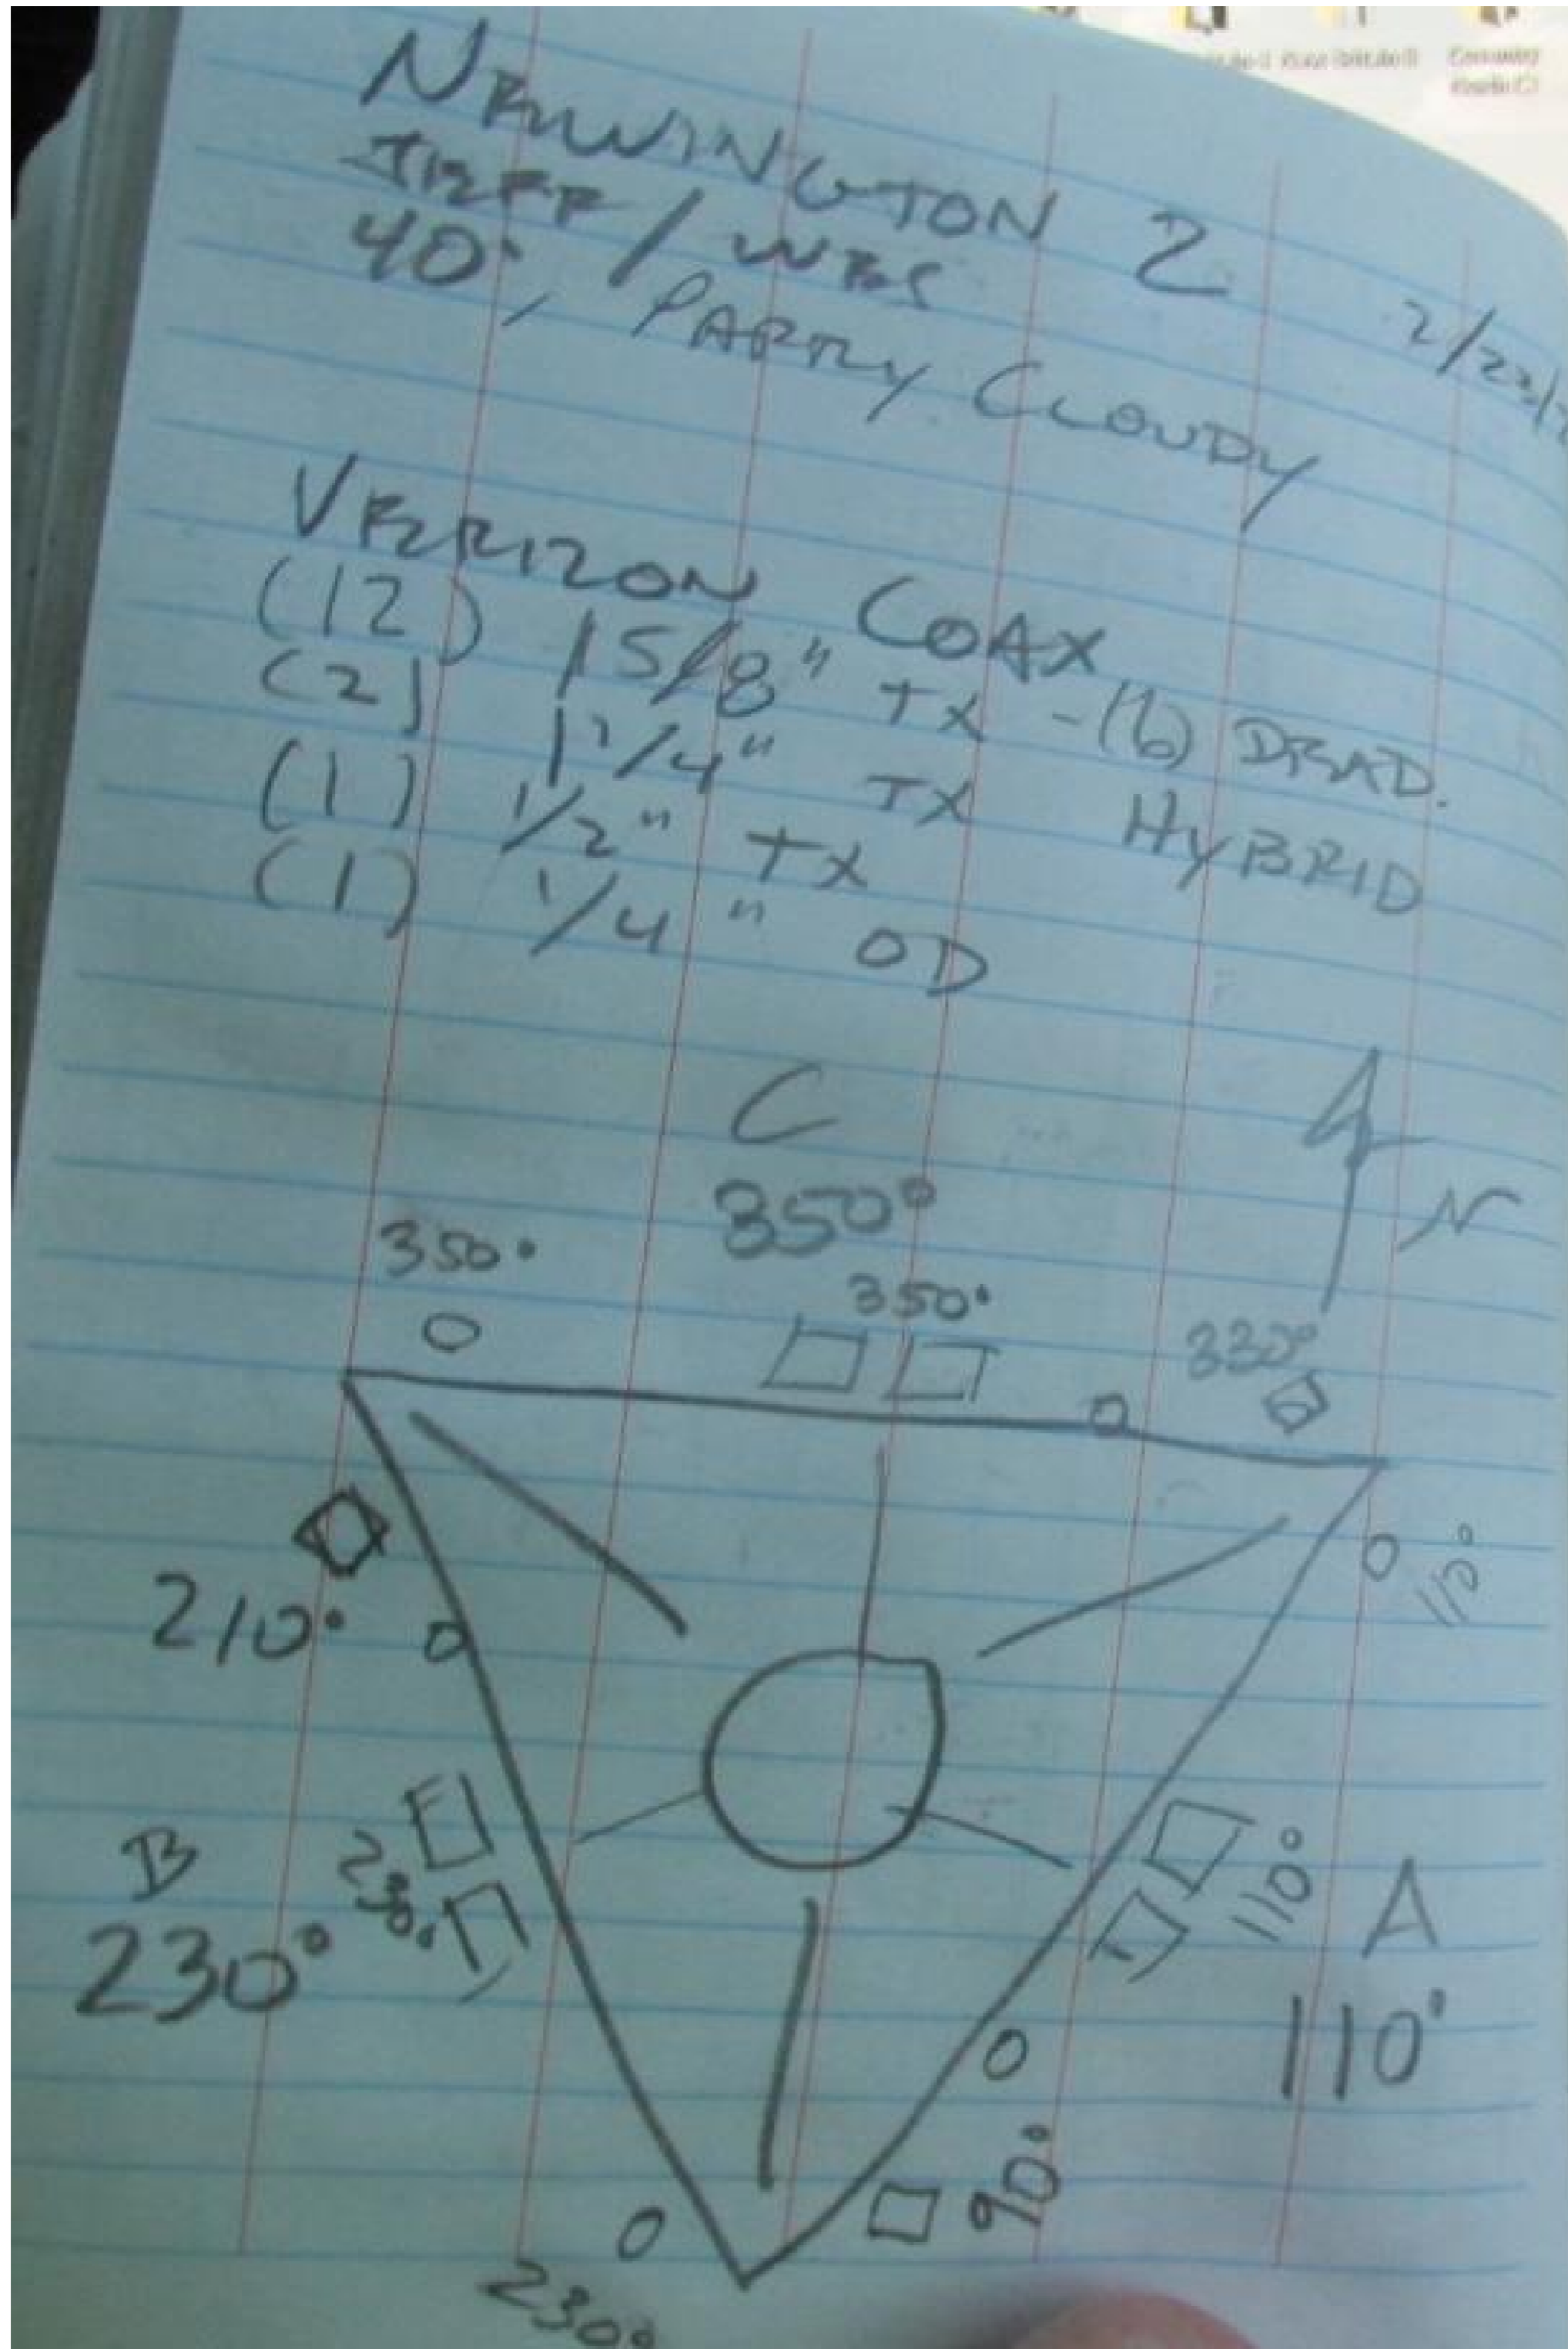 NEWINGTON 2
JEFF / WES
2/23/1
40°, PARTLY CLOUDY
VERIZON COAX
(12) 1 5/8" TX - (6) DEAD.
(2) 1 1/4" TX HYBRID
(1) 1/2" TX
(1) 1/4" OD
C
N
350°
350°
350°
330°
110°
210°
B
230°
230°
110°
A
110°
90°
230°